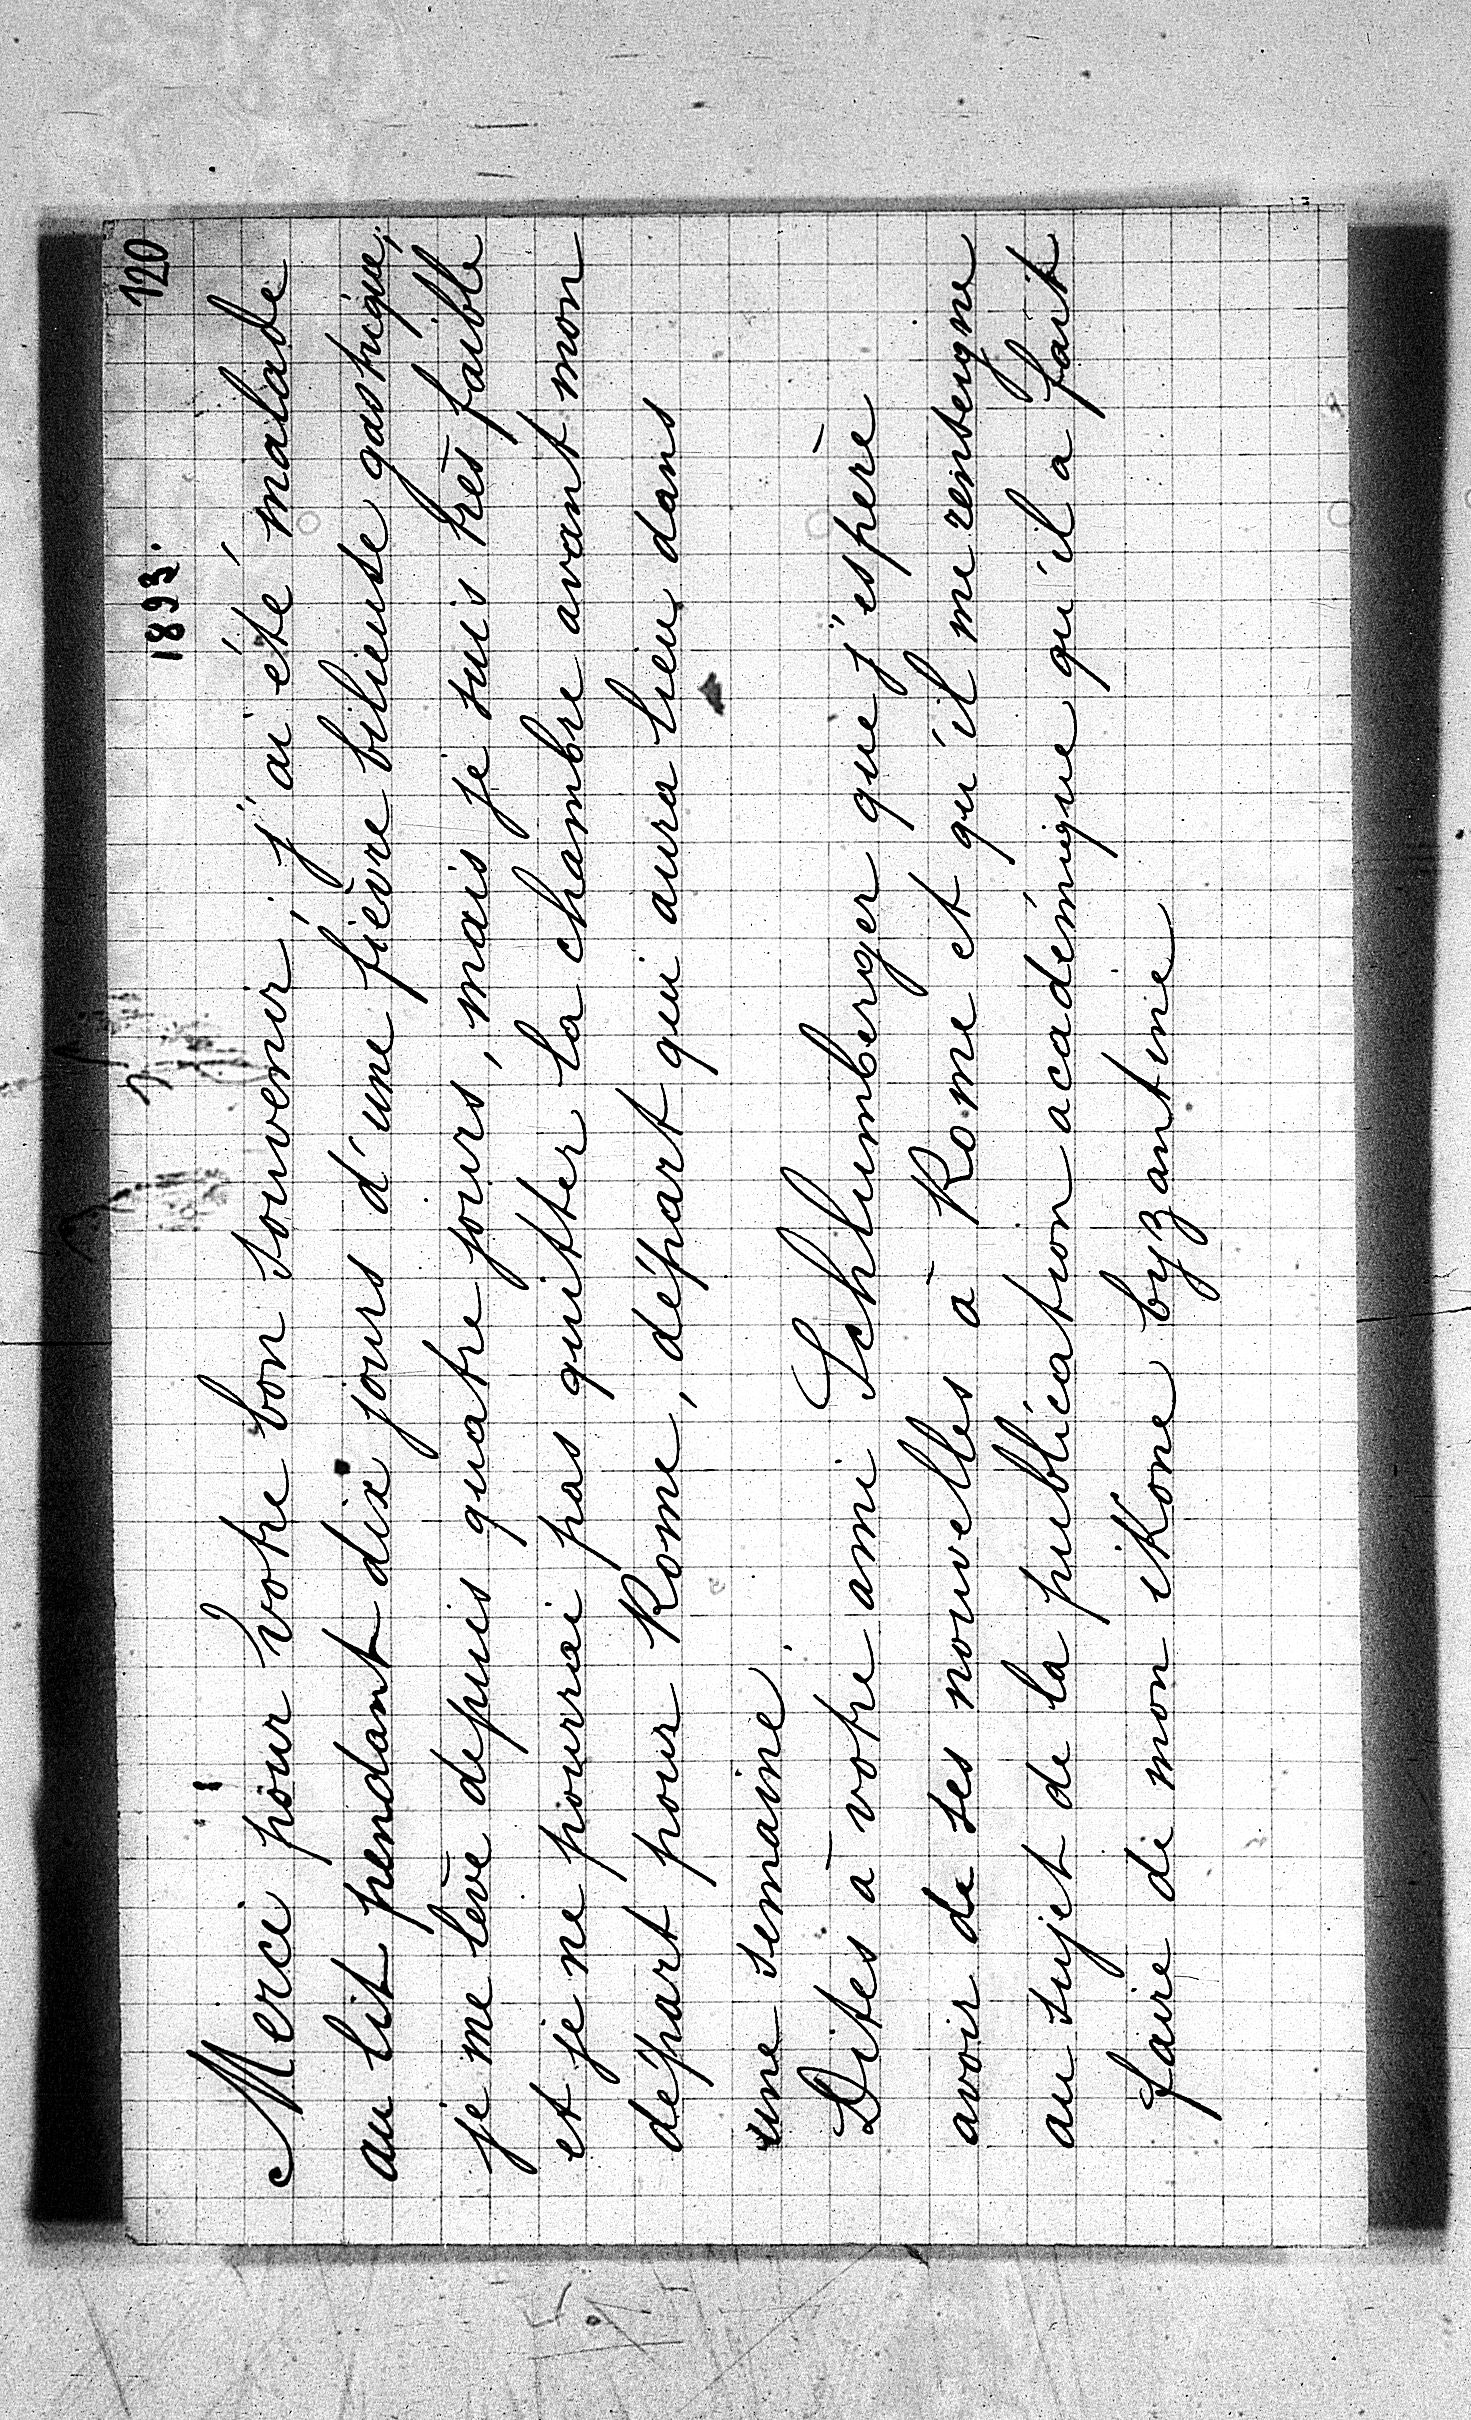 120
1893.
Merci pour votre bon souvenir, j'ai été malade
au lit pendant dix jours d'une fièvre bilieuse gastrique,
je me lève depuis quatre jours, mais je suis très faible
et je ne pourrai pas quitter la chambre avant mon
départ pour Rome, départ qui aura lieu dans
une semaine.
Dites à votre ami Schlumberger que j'espère
avoir de ses nouvelles à Rome et qu'il me renseigne
au sujet de la publication académique qu'il a fait
faire de mon ikone byzantine